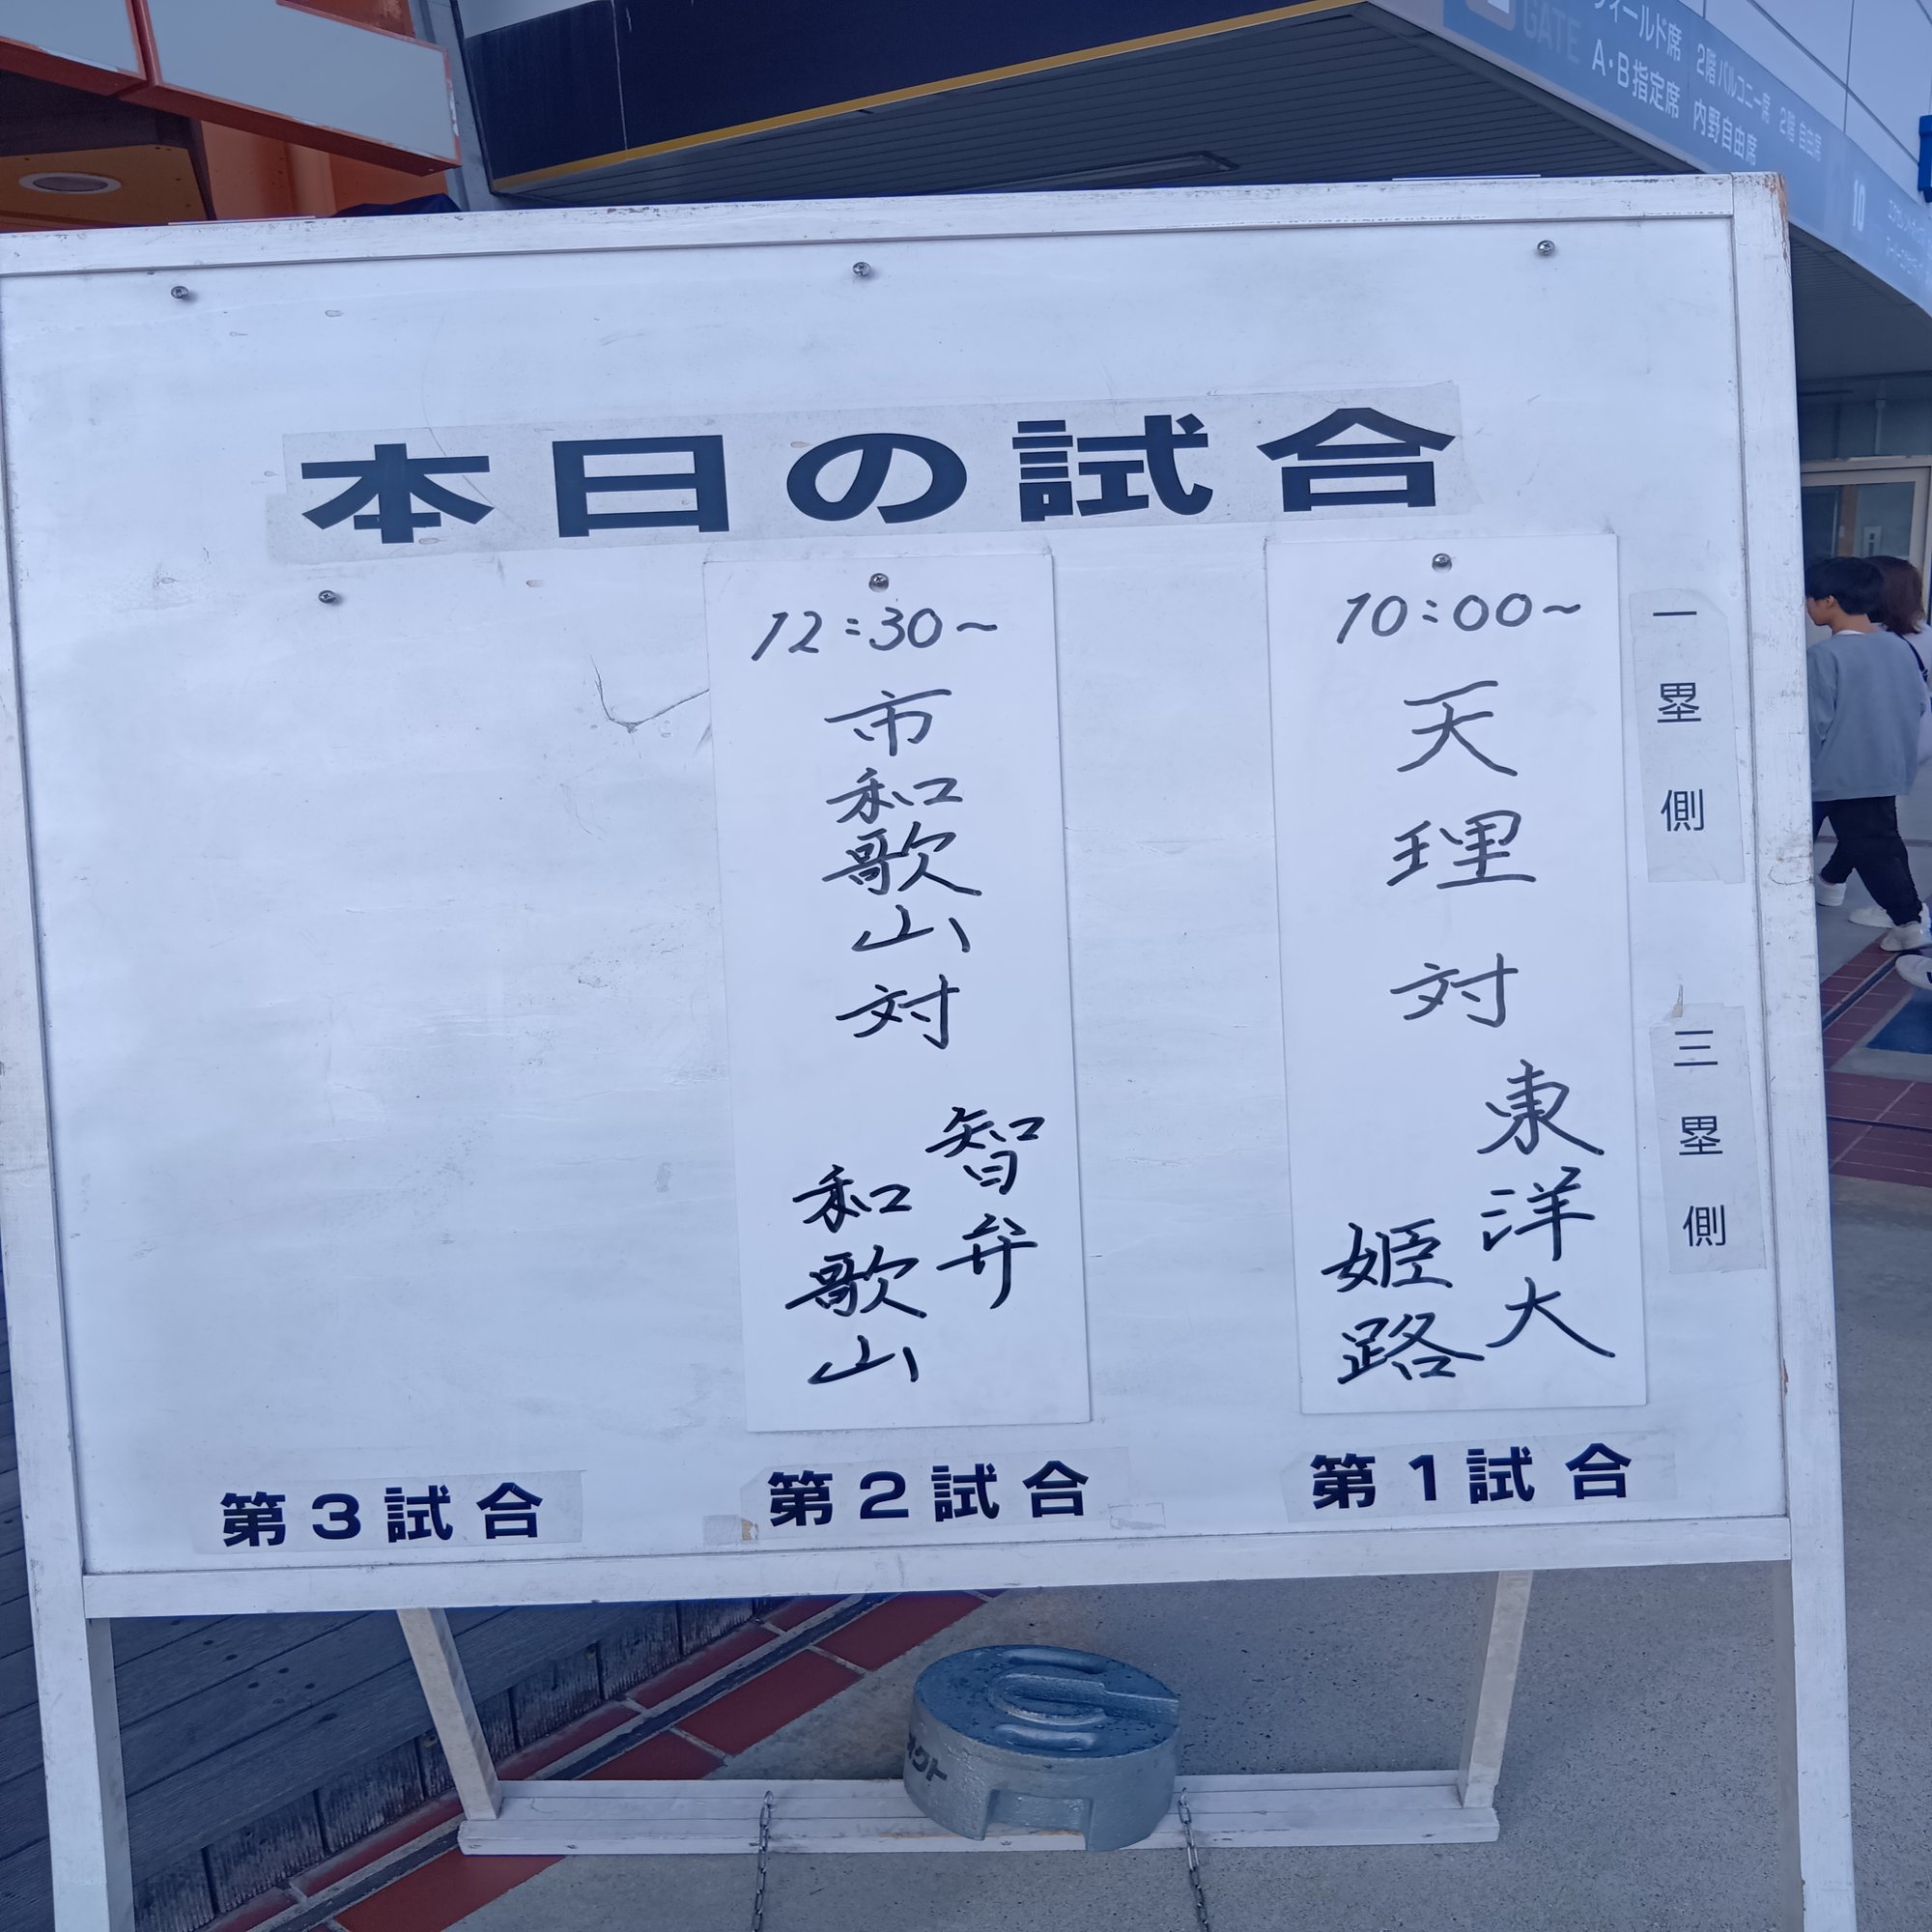 フィールド席 2階バルコニー席 2階 自由席
GATE A・B指定席 内野自由席
10
本日の試合
一塁側
三塁側
10:00~
天理対東洋大
姫路
第1試合
12:30~
市和歌山対智弁
和歌山
第2試合
第3試合